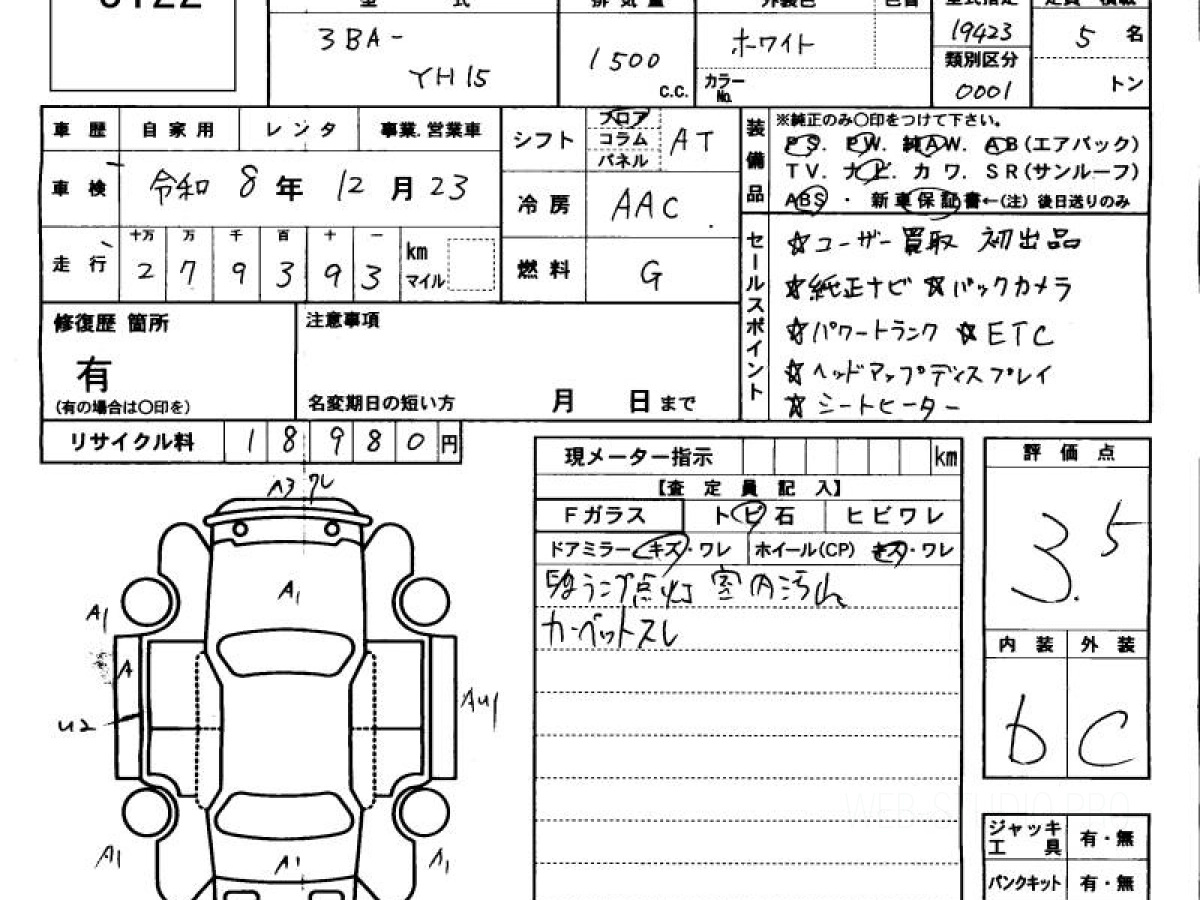 型 式
排 気 量
外装色
色替
型式指定
定員 積載
3BA-
YH15
1500
C.C.
ホワイト
カラー
No.
19423
類別区分
0001
5 名
トン
車 歴 自 家 用 レ ン タ 事業.営業車
車 検 令和 8 年 12 月 23
走 行 十万 万 千 百 十 一
2 7 9 3 9 3 km
マイル
シフト フロア
コラム
パネル
AT
冷 房 AAC
燃 料 G
装備品
※純正のみ〇印をつけて下さい。
PS. PW. 純AW. AB(エアバック)
TV. ナビ. カワ. SR(サンルーフ)
ABS ・ 新車保証書←(注) 後日送りのみ
セールスポイント
☆ユーザー買取 初出品
☆純正ナビ ☆バックカメラ
☆パワートランク ☆ETC
☆ヘッドアップディスプレイ
☆シートヒーター
修復歴 箇所
有
(有の場合は〇印を)
注意事項
名変期日の短い方 月 日まで
リサイクル料 18980円
現メーター指示 km
【査 定 員 記 入】
Fガラス ト ビ 石 ヒビワレ
ドアミラー キズ・ワレ ホイール(CP) キズ・ワレ
ランプ点灯 室内汚れ
カーペットスレ
評 価 点
3.5
内 装 外 装
b C
ジャッキ
工 具
有・無
パンクキット 有・無
A3 ワレ
A1
A1
A
U2
AU1
A1
A1
A1
WEB-STUDIO.PRO